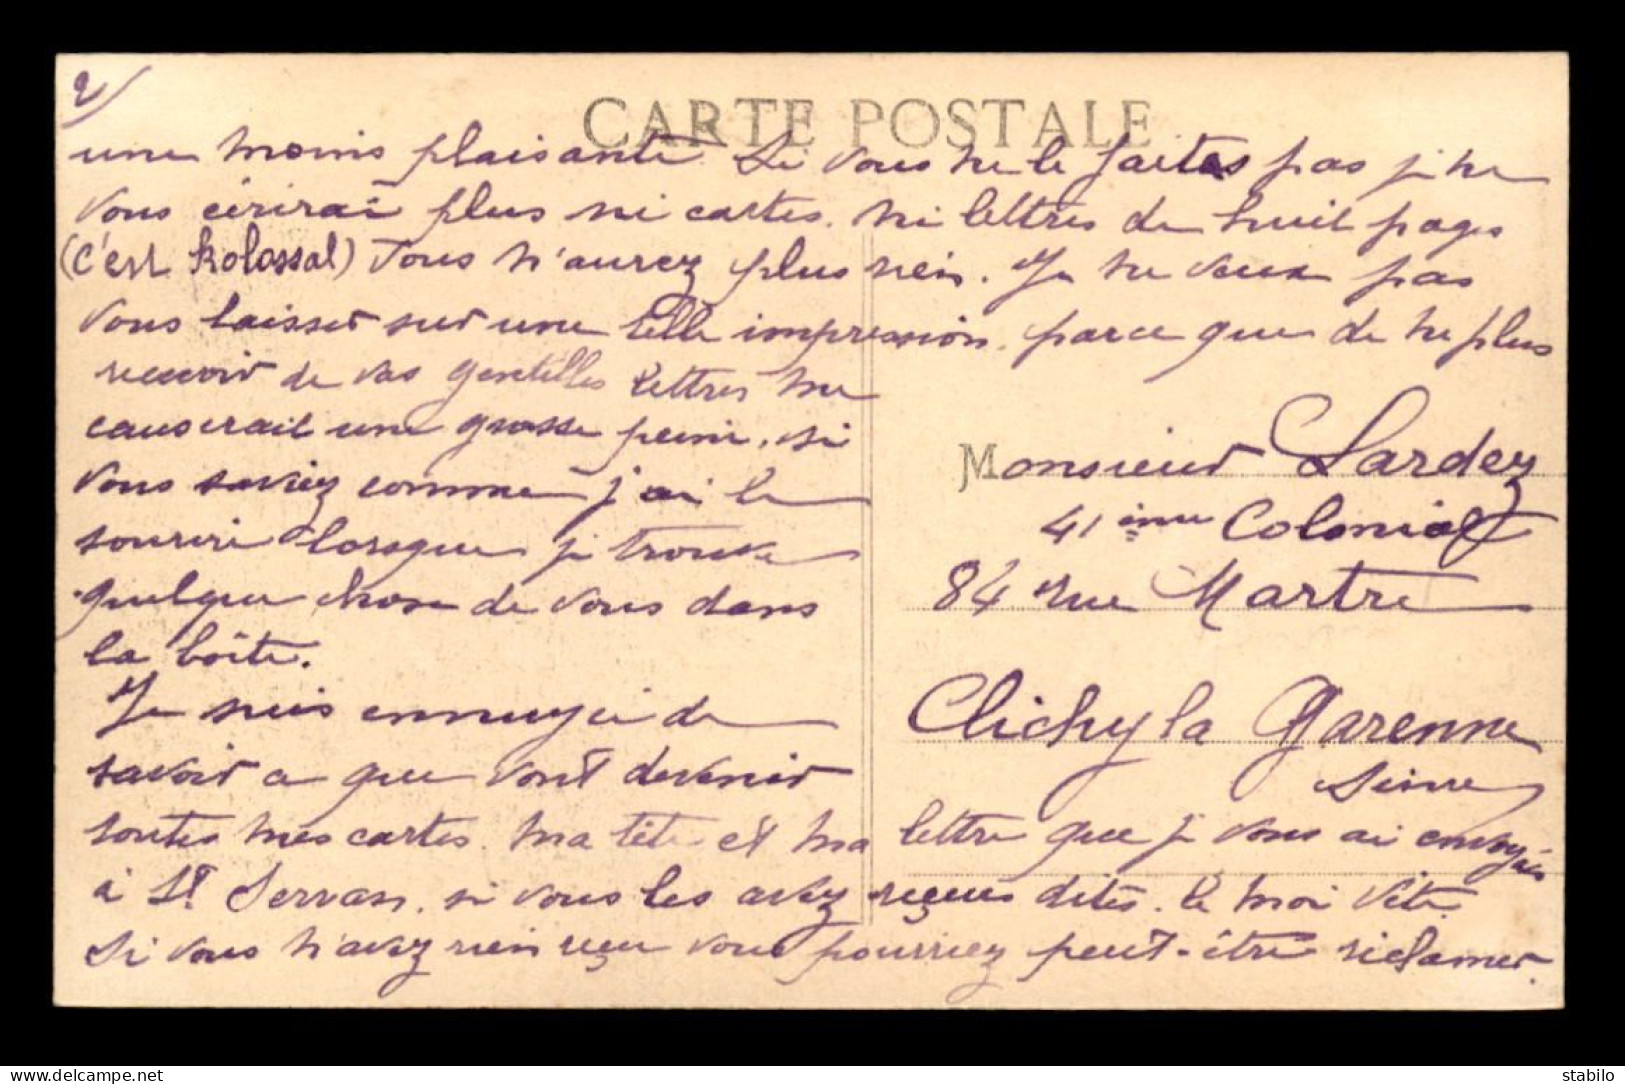 2/
CARTE POSTALE
une moins plaisante. Si vous ne le faites pas je ne
vous écrirai plus ni cartes. ni lettres de huit pages
(c'est kolossal) Vous n'aurez plus rien. Je ne veux pas
vous laisser sur une telle impression. parce que de ne plus
recevoir de vos gentilles lettres me
causerait une grosse peine. si
vous saviez comme j'ai le
sourire lorsque je trouve
quelque chose de vous dans
la boîte.
Je suis ennuyée de
savoir ce que vont devenir
toutes mes cartes. ma tête et ma
lettre que je vous ai envoyées
à St Servan. si vous les avez reçues dites. le moi vite.
Si vous n'avez rien reçu vous pourriez peut-être réclamer.
Monsieur Lardez
41 ième Colonial
84 rue Martre
Clichy la Garenne
Seine
www.delcampe.net
stabilo